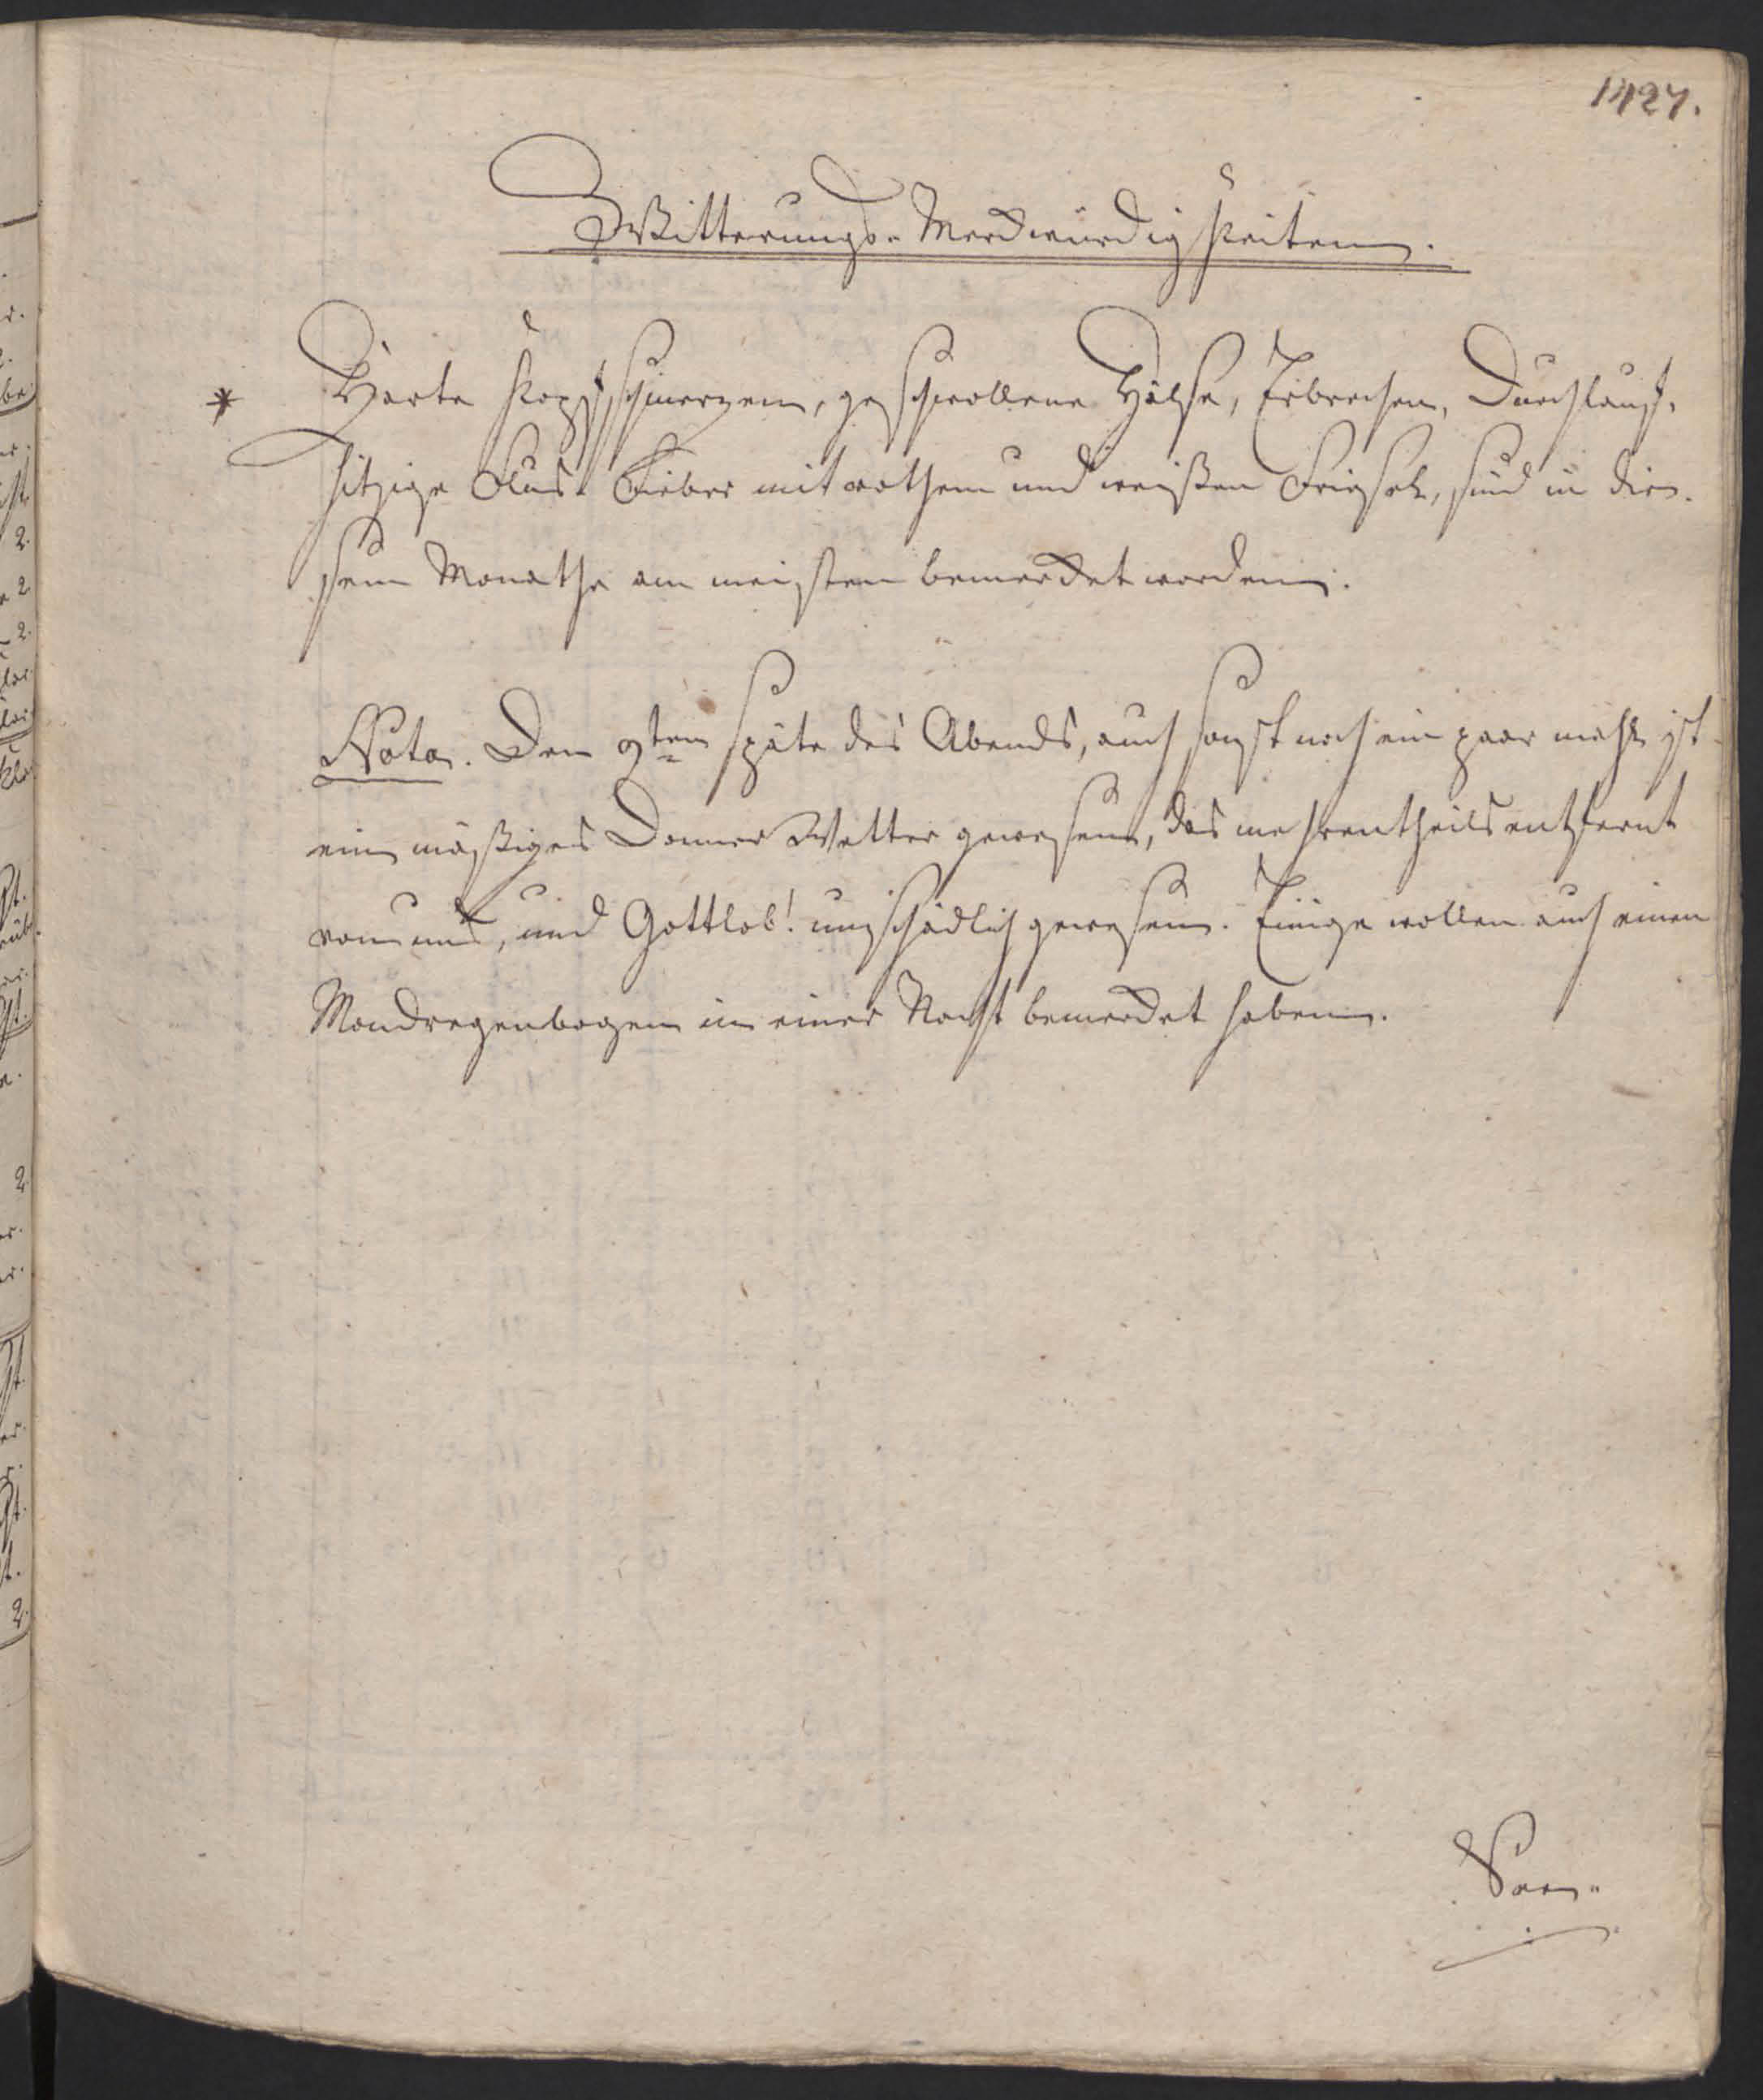 1427.
Witterungs-Merckwürdigkeiten.
* Harte Kopfschmerzen, geschwollene Hälse, Erbrechen, Durchlauf,
hitzige Fluß-Fieber mit rothem und weißen Friesel, sind in die-
sem Monathe am meisten bemercket worden.
Nota. Den 9ten späte des Abends, auch sonst noch ein paar mahl ist
ein mäßiges Donner Wetter gewesen, das mehrentheils entfernt
von uns, und Gottlob! unschädlich gewesen. Einige wollen auch einen
Mondregenbogen in einer Nacht bemercket haben.